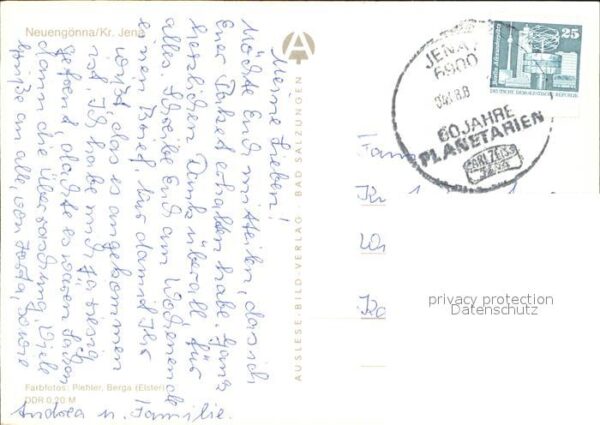 Neuengönna/Kr. Jena
Meine Lieben!
Möchte Euch mitteilen, das ich
Euer Paket erhalten habe. Ganz
herzlichen Dank überall für
alles. Schreibe Euch am Wochenende
einen Brief. Nur damit Ihr
wißt, das es angekommen
ist. Ich habe mich ja riesig
gefreut, dachte es waren Sachen
dann die Überraschung. Viele
Grüße an alle, von Jutta, sowie
Andrea u. Familie.
Farbfotos: Piehler, Berga (Elster)
DDR 0,20 M
AUSLESE-BILD-VERLAG · BAD SALZUNGEN
JENA
6900
60 JAHRE
PLANETARIEN
CARL ZEISS
JENA
25
DEUTSCHE DEMOKRATISCHE REPUBLIK
Fam
privacy protection
Datenschutz